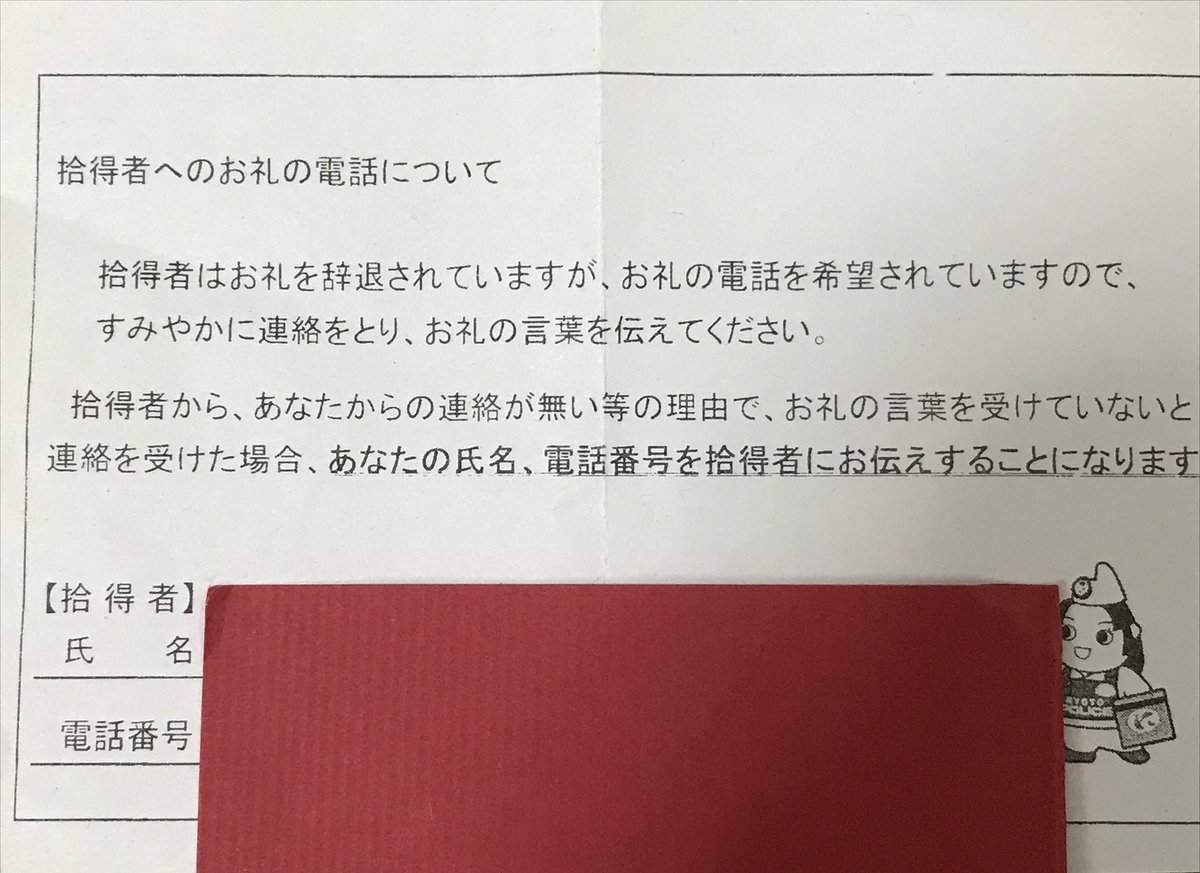 拾得者へのお礼の電話について
拾得者はお礼を辞退されていますが、お礼の電話を希望されていますので、
すみやかに連絡をとり、お礼の言葉を伝えてください。
拾得者から、あなたからの連絡が無い等の理由で、お礼の言葉を受けていないと
連絡を受けた場合、あなたの氏名、電話番号を拾得者にお伝えすることになります
【拾得者】
氏 名
電話番号